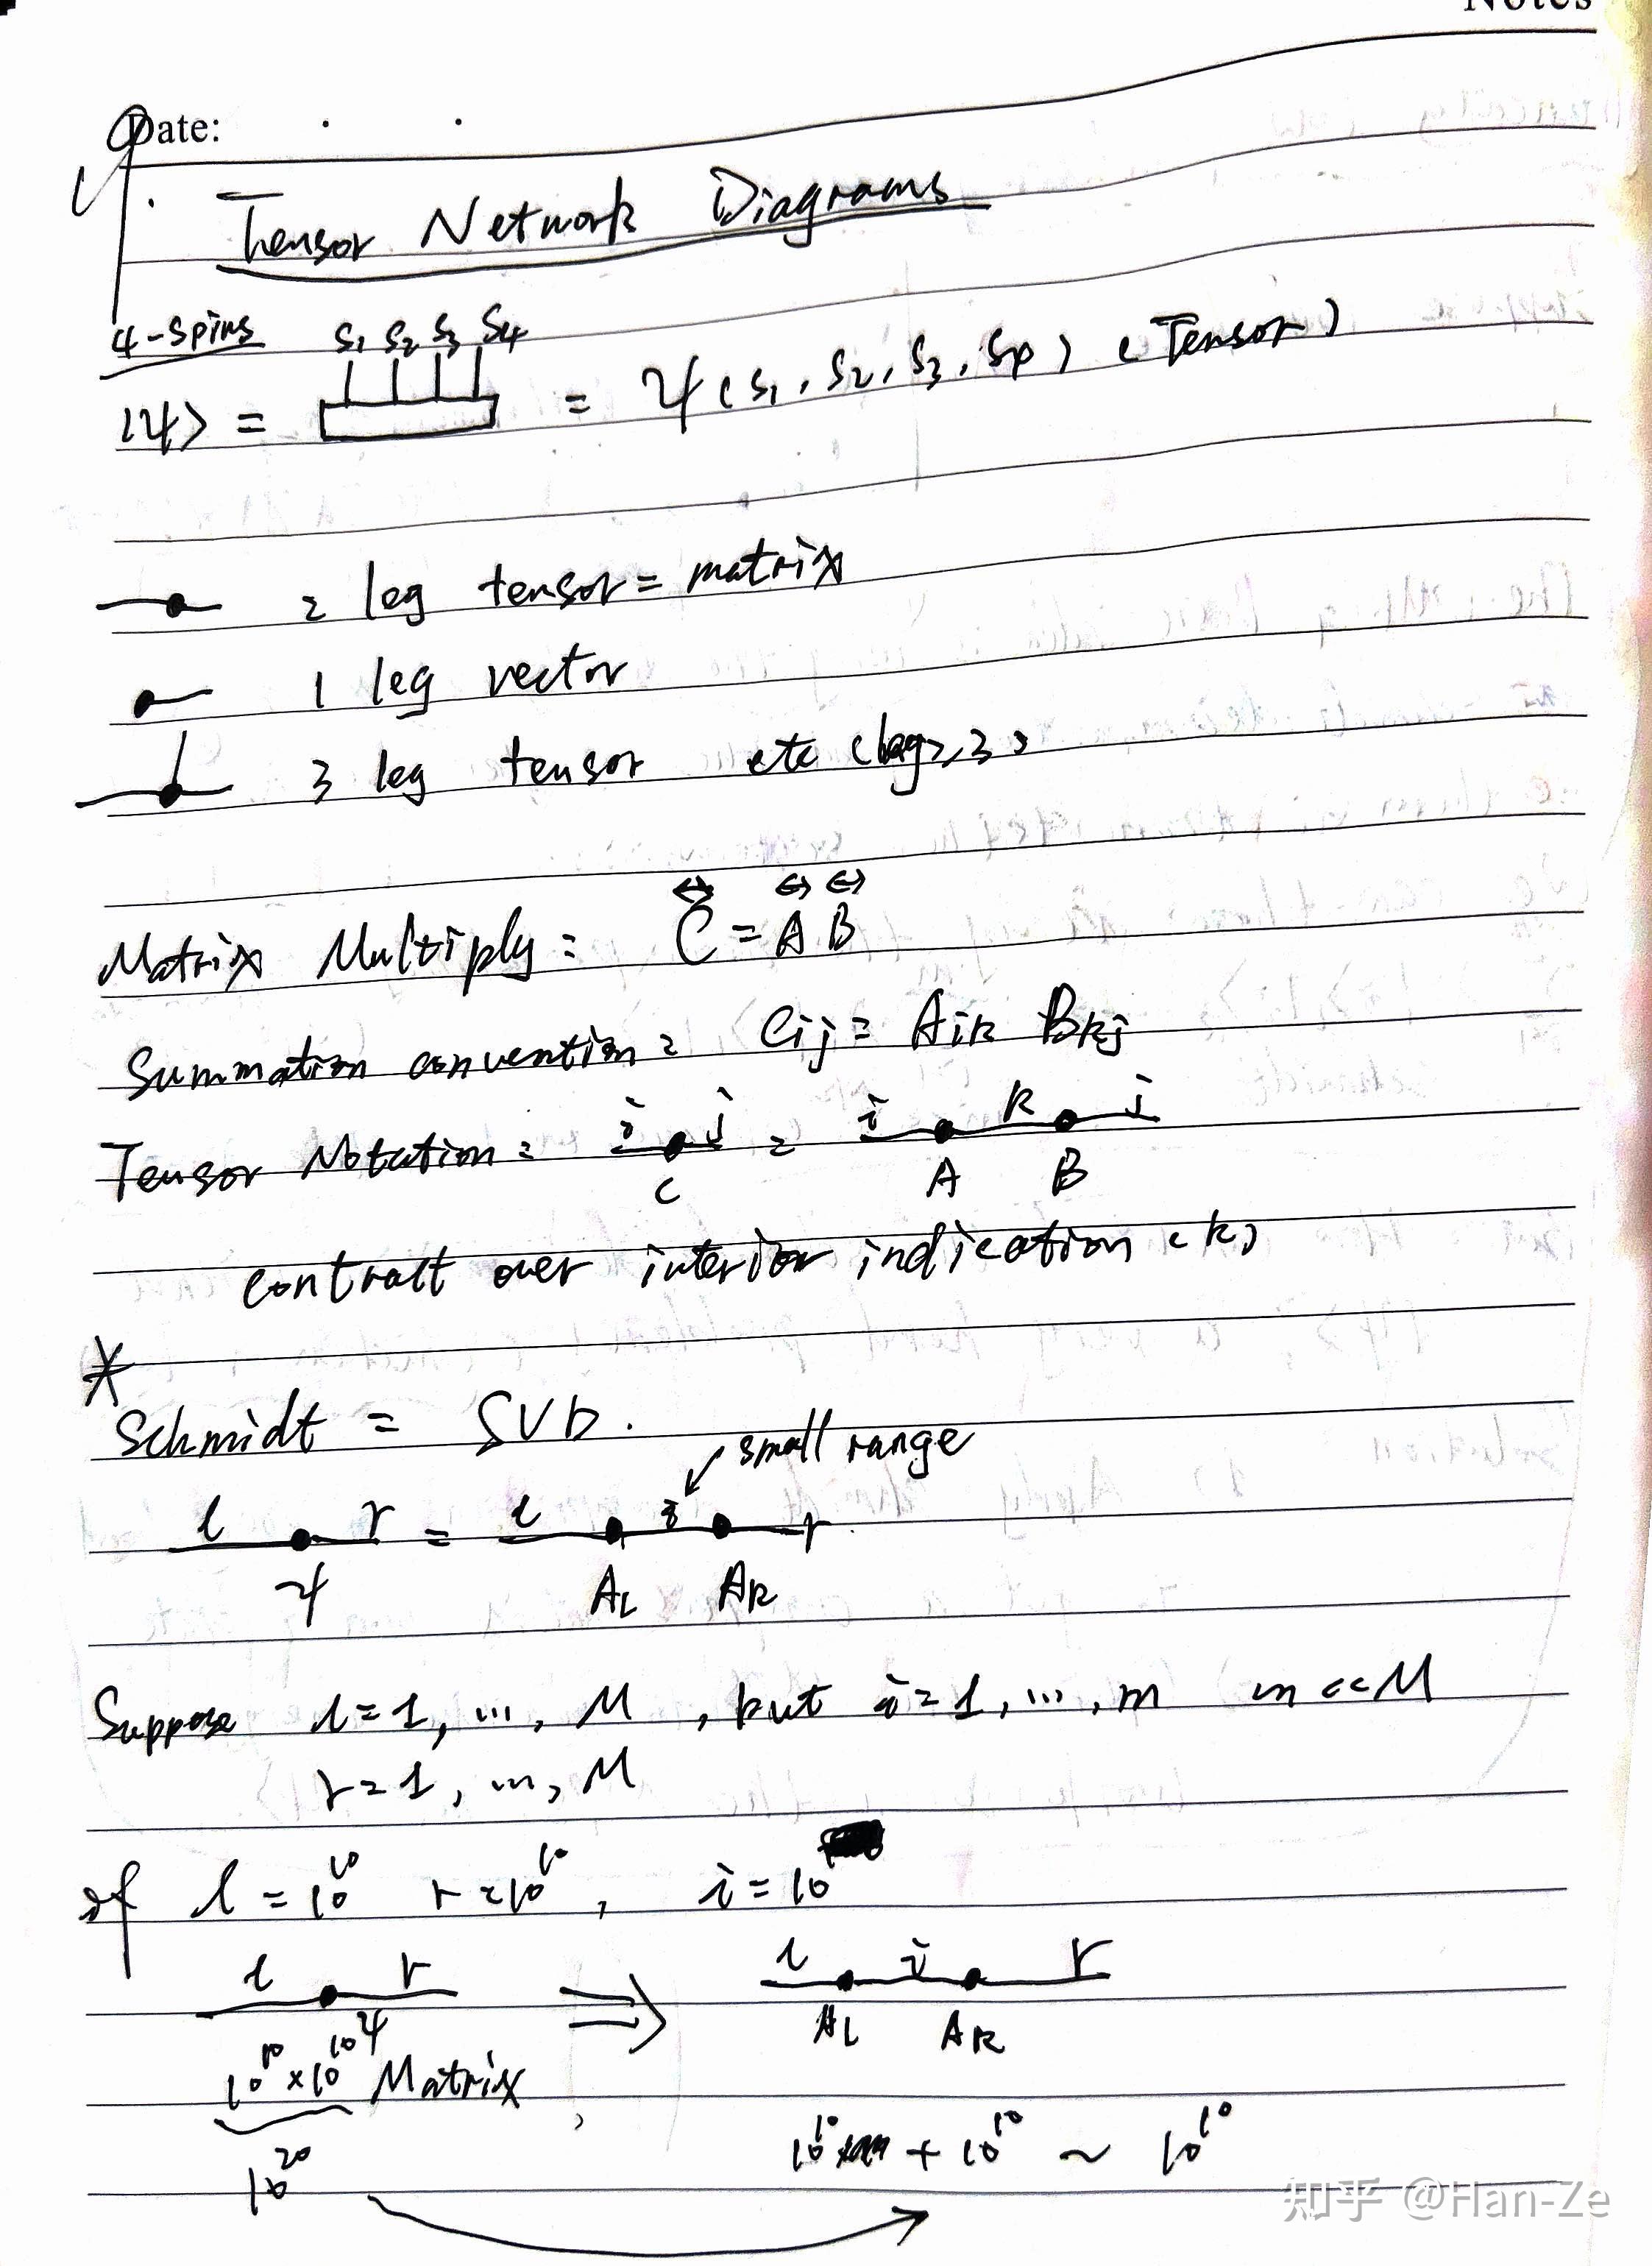 Notes
Date:
Tensor Network Diagrams
4-spins s₁ s₂ s₃ s₄
|ψ⟩ = = ψ(s₁, s₂, s₃, sp) (Tensor)
2 leg tensor = matrix
1 leg vector
3 leg tensor etc (leg ≥ 3)
Matrix Multiply: C = A B
Summation convention: Cij = Aik Bkj
Tensor Notation: i j = i k j
C A B
contract over interior indication (k)
*
Schmidt = SVD.
small range
l r = l i r
ψ A_L A_R
Suppose l=1, ..., M, but i=1, ..., m m<<M
r=1, ..., M
if l = 10¹⁰ r=10¹⁰, i=10
l r ⇒ l i r
ψ A_L A_R
10¹⁰×10¹⁰ Matrix,
10¹⁰ + 10¹⁰ ~ 10¹⁰
10²⁰
知乎 @Han-Ze